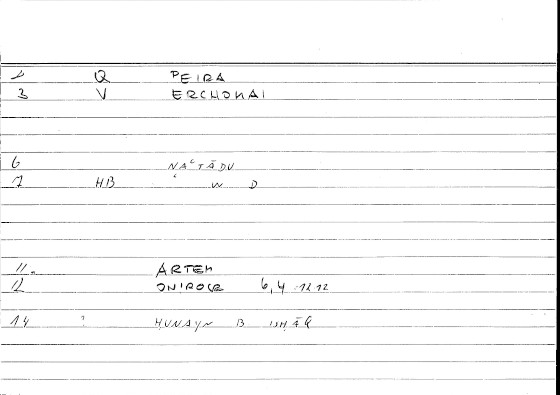 2 Q PEIRA
3 V ERCHOMAI
6 NAʿTĀDU
7 HB ʿ W D
11. ARTEM
12 ONIROCR 6,4 12 12
14 ? ḤUNAYN B ISḤĀQ